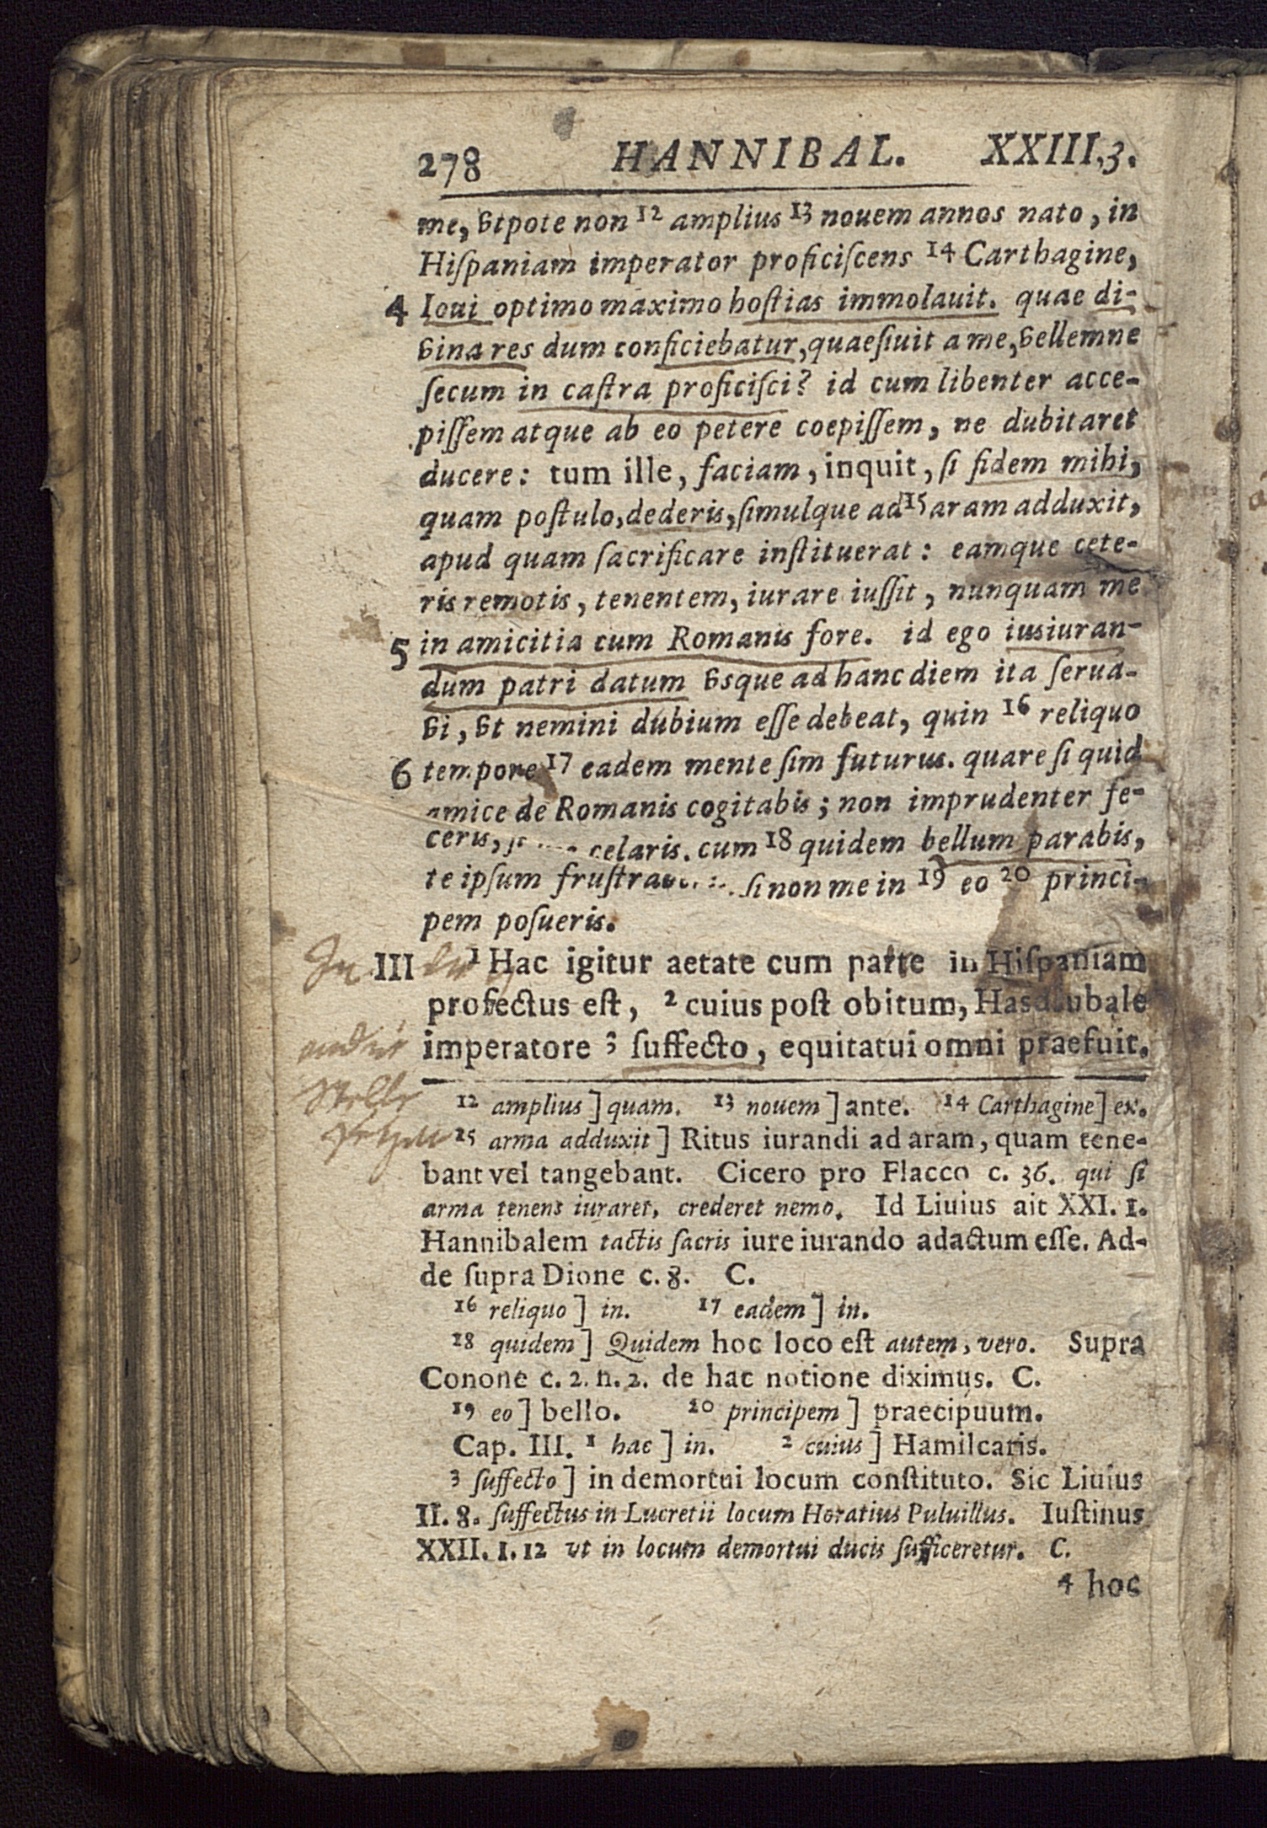 278 HANNIBAL. XXIII,3.
me, vtpote non 12 amplius 13 nouem annos nato, in
Hiſpaniam imperator proficiſcens 14 Carthagine,
4 Ioui optimo maximo hoſtias immolauit. quae di-
vina res dum conficiebatur, quaeſiuit a me, vellemne
ſecum in caſtra proficiſci? id cum libenter acce-
piſſem atque ab eo petere coepiſſem, ne dubitaret
ducere: tum ille, faciam, inquit, ſi fidem mihi,
quam poſtulo, dederis, ſimulque ad 15 aram adduxit,
apud quam ſacrificare inſtituerat: eamque cete-
ris remotis, tenentem, iurare iuſſit, nunquam me
5 in amicitia cum Romanis fore. id ego iusiuran-
dum patri datum vsque ad hanc diem ita ſerua-
vi, vt nemini dubium eſſe debeat, quin 16 reliquo
6 tempore 17 eadem mente ſim futurus. quare ſi quid
amice de Romanis cogitabis; non imprudenter fe-
ceris, celaris. cum 18 quidem bellum parabis,
te ipſum ſi non me in 19 eo 20 princi-
pem poſueris.
In III 1 Hac igitur aetate cum patre in Hiſpaniam
profectus eſt, 2 cuius poſt obitum, Hasdrubale
imperatore 3 ſuffecto, equitatui omni praefuit.
12 amplius] quam. 13 nouem] ante. 14 Carthagine] ex.
15 arma adduxit] Ritus iurandi ad aram, quam tene-
bant vel tangebant. Cicero pro Flacco c. 36. qui ſi
arma tenens iuraret, crederet nemo. Id Liuius ait XXI. 1.
Hannibalem tactis ſacris iure iurando adactum eſſe. Ad-
de ſupra Dione c. 8. C.
16 reliquo] in. 17 eadem] in.
18 quidem] Quidem hoc loco eſt autem, vero. Supra
Conone c. 2. n. 2. de hac notione diximus. C.
19 eo] bello. 20 principem] praecipuum.
Cap. III. 1 hac] in. 2 cuius] Hamilcaris.
3 ſuffecto] in demortui locum conſtituto. Sic Liuius
II. 8. ſuffectus in Lucretii locum Horatius Puluillus. Iuſtinus
XXII. 1. 12 vt in locum demortui ducis ſufficeretur. C.
4 hoc